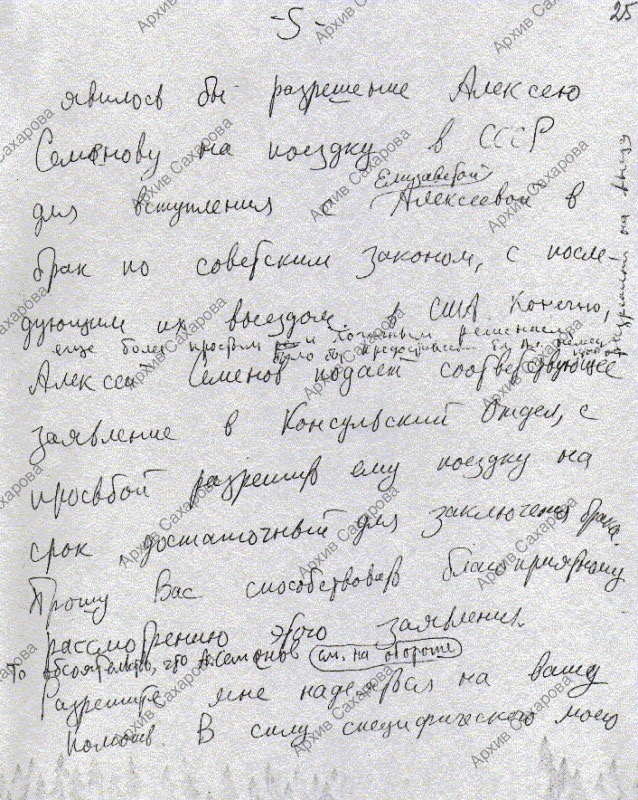 - 5 -
25
явилось бы разрешение Алексею
Семёнову на поездку в СССР
для вступления с Елизаветой Алексеевой в
брак по советским законом, с после-
дующим их выездом в США. Конечно,
еще более простым и логичным решением
было бы предоставить
разрешения на выезд
Алексей Семенов подает соответствующее
заявление в Консульский Отдел, с
просьбой разрешить ему поездку на
срок достаточный для заключения брака.
Прошу Вас способствовать благоприятному
рассмотрению этого заявления.
То обстоятельство, что А. Семенов
см. на обороте
Разрешите мне надеяться на вашу
помощь. В силу специфического моего
Архив Сахарова